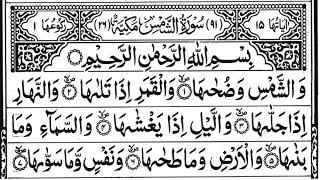 اٰیَاتُهَا ۱۵ (۹۱) سُوْرَةُ الشَّمْسِ مَكِّيَّةٌ (۲۶) رُكُوْعُهَا ۱
بِسْمِ اللهِ الرَّحْمٰنِ الرَّحِيْمِ
وَالشَّمْسِ وَضُحٰىهَا ۱ وَالْقَمَرِ اِذَا تَلٰىهَا ۲ وَالنَّهَارِ
اِذَا جَلّٰىهَا ۳ وَالَّيْلِ اِذَا يَغْشٰىهَا ۴ وَالسَّمَآءِ وَمَا
بَنٰىهَا ۵ وَالْاَرْضِ وَمَا طَحٰىهَا ۶ وَنَفْسٍ وَّمَا سَوّٰىهَا ۷